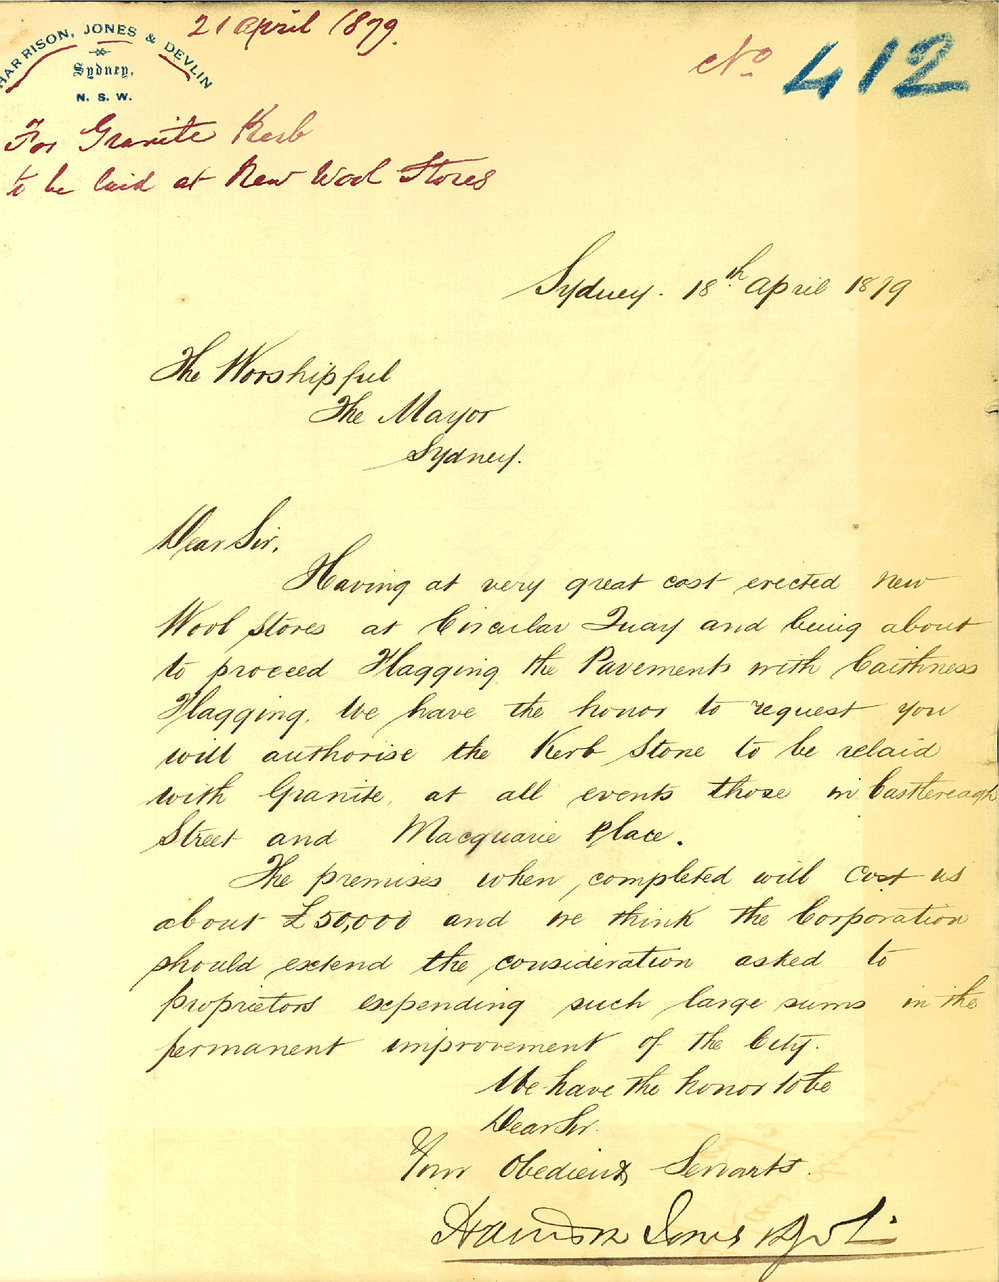 HARRISON, JONES & DEVLIN
Sydney,
N. S. W.
21 april 1879.
No 412
For Granite Kerb
to be laid at New Wool Stores
Sydney. 18th april 1879
The Worshipful
The Mayor
Sydney.
Dear Sir,
Having at very great cost erected new
Wool Stores at Circular Quay and being about
to proceed Flagging the Pavements with Caithness
Flagging. We have the honor to request you
will authorise the Kerb Stone to be relaid
with Granite, at all events those in Castlereagh
Street and Macquarie Place.
The premises when completed will cost us
about £50,000 and we think the Corporation
should extend the consideration asked to
proprietors expending such large sums in the
permanent improvement of the City.
We have the honor to be
Dear Sir.
Your Obedient Servants.
Harrison Jones & Devlin